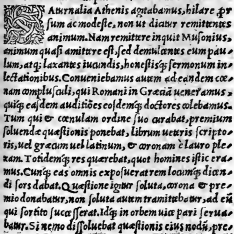 SAturnalia Athenis agitabamus, hilare prorsum
ac modeste, non ut dicitur remittentes
animum. Nam remittere inquit Musonius,
animum quasi amittere est, sed demulcentes eum paulum,
atq; laxantes iucundis, honestisq; sermonum in
lectationibus. Conueniebamus autem ad eandem cœ
nam complusculi, qui Romani in Græciã veneramus
quiq; easdem auditiões eosdemq; doctores colebamus.
Tum qui & cœnulam ordine suo curabat, premium
soluendæ quæstionis ponebat, librum veteris scripto
ris, vel græcum vel latinum, & coronam è lauro plexam.
Totidemq; res quærebat, quot homines istic era
mus. Cunq; eas omnis exposuerat rem locumq; dicen
di sors dabat. Quæstio igitur soluta, corona & præ
mio donabatur, non soluta autem tramittebatur, ad eũ
qui sortito successerat. Idq; in orbem uice pari serua
batur. Si nemo dissoluebat quæstionis eius nod&#x169;, præ